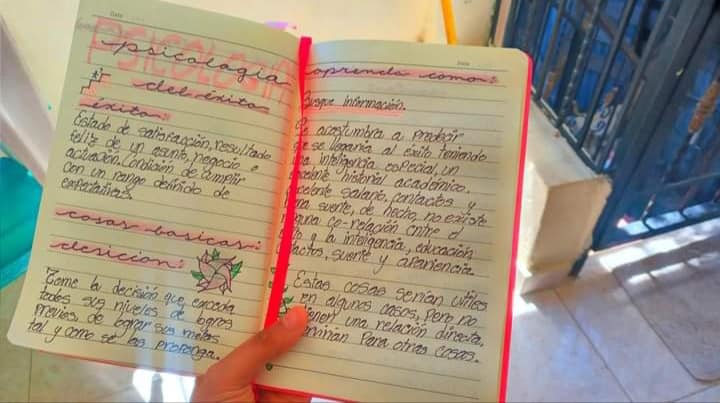 Date
PSICOLOGIA
psicologia
del éxito
éxito:
Estado de satisfacción, resultado
feliz de un asunto, negocio o
actuación. Condición de cumplir
con un rango definido de
expectativas
cosas basicas:
desicion:
Tome la decisión que exceda
todos sus niveles de logros
previos de lograr ses metas
tal y como se las proponga.
Date
aprenda como:
Busque información.
Se acostumbra a predecir
que se llegaria al éxito teniendo
una inteligencia especial, un
excelente historial academico,
excelente salario, contactos y
buena suerte, de hecho, no existe
ninguna co-relación entre el
éxito y la inteligencia, educación
contactos, suerte y apariencia.
Estas cosas serian utiles
en algunos casos, pero no
tienen una relación directa,
Para otras cosas.